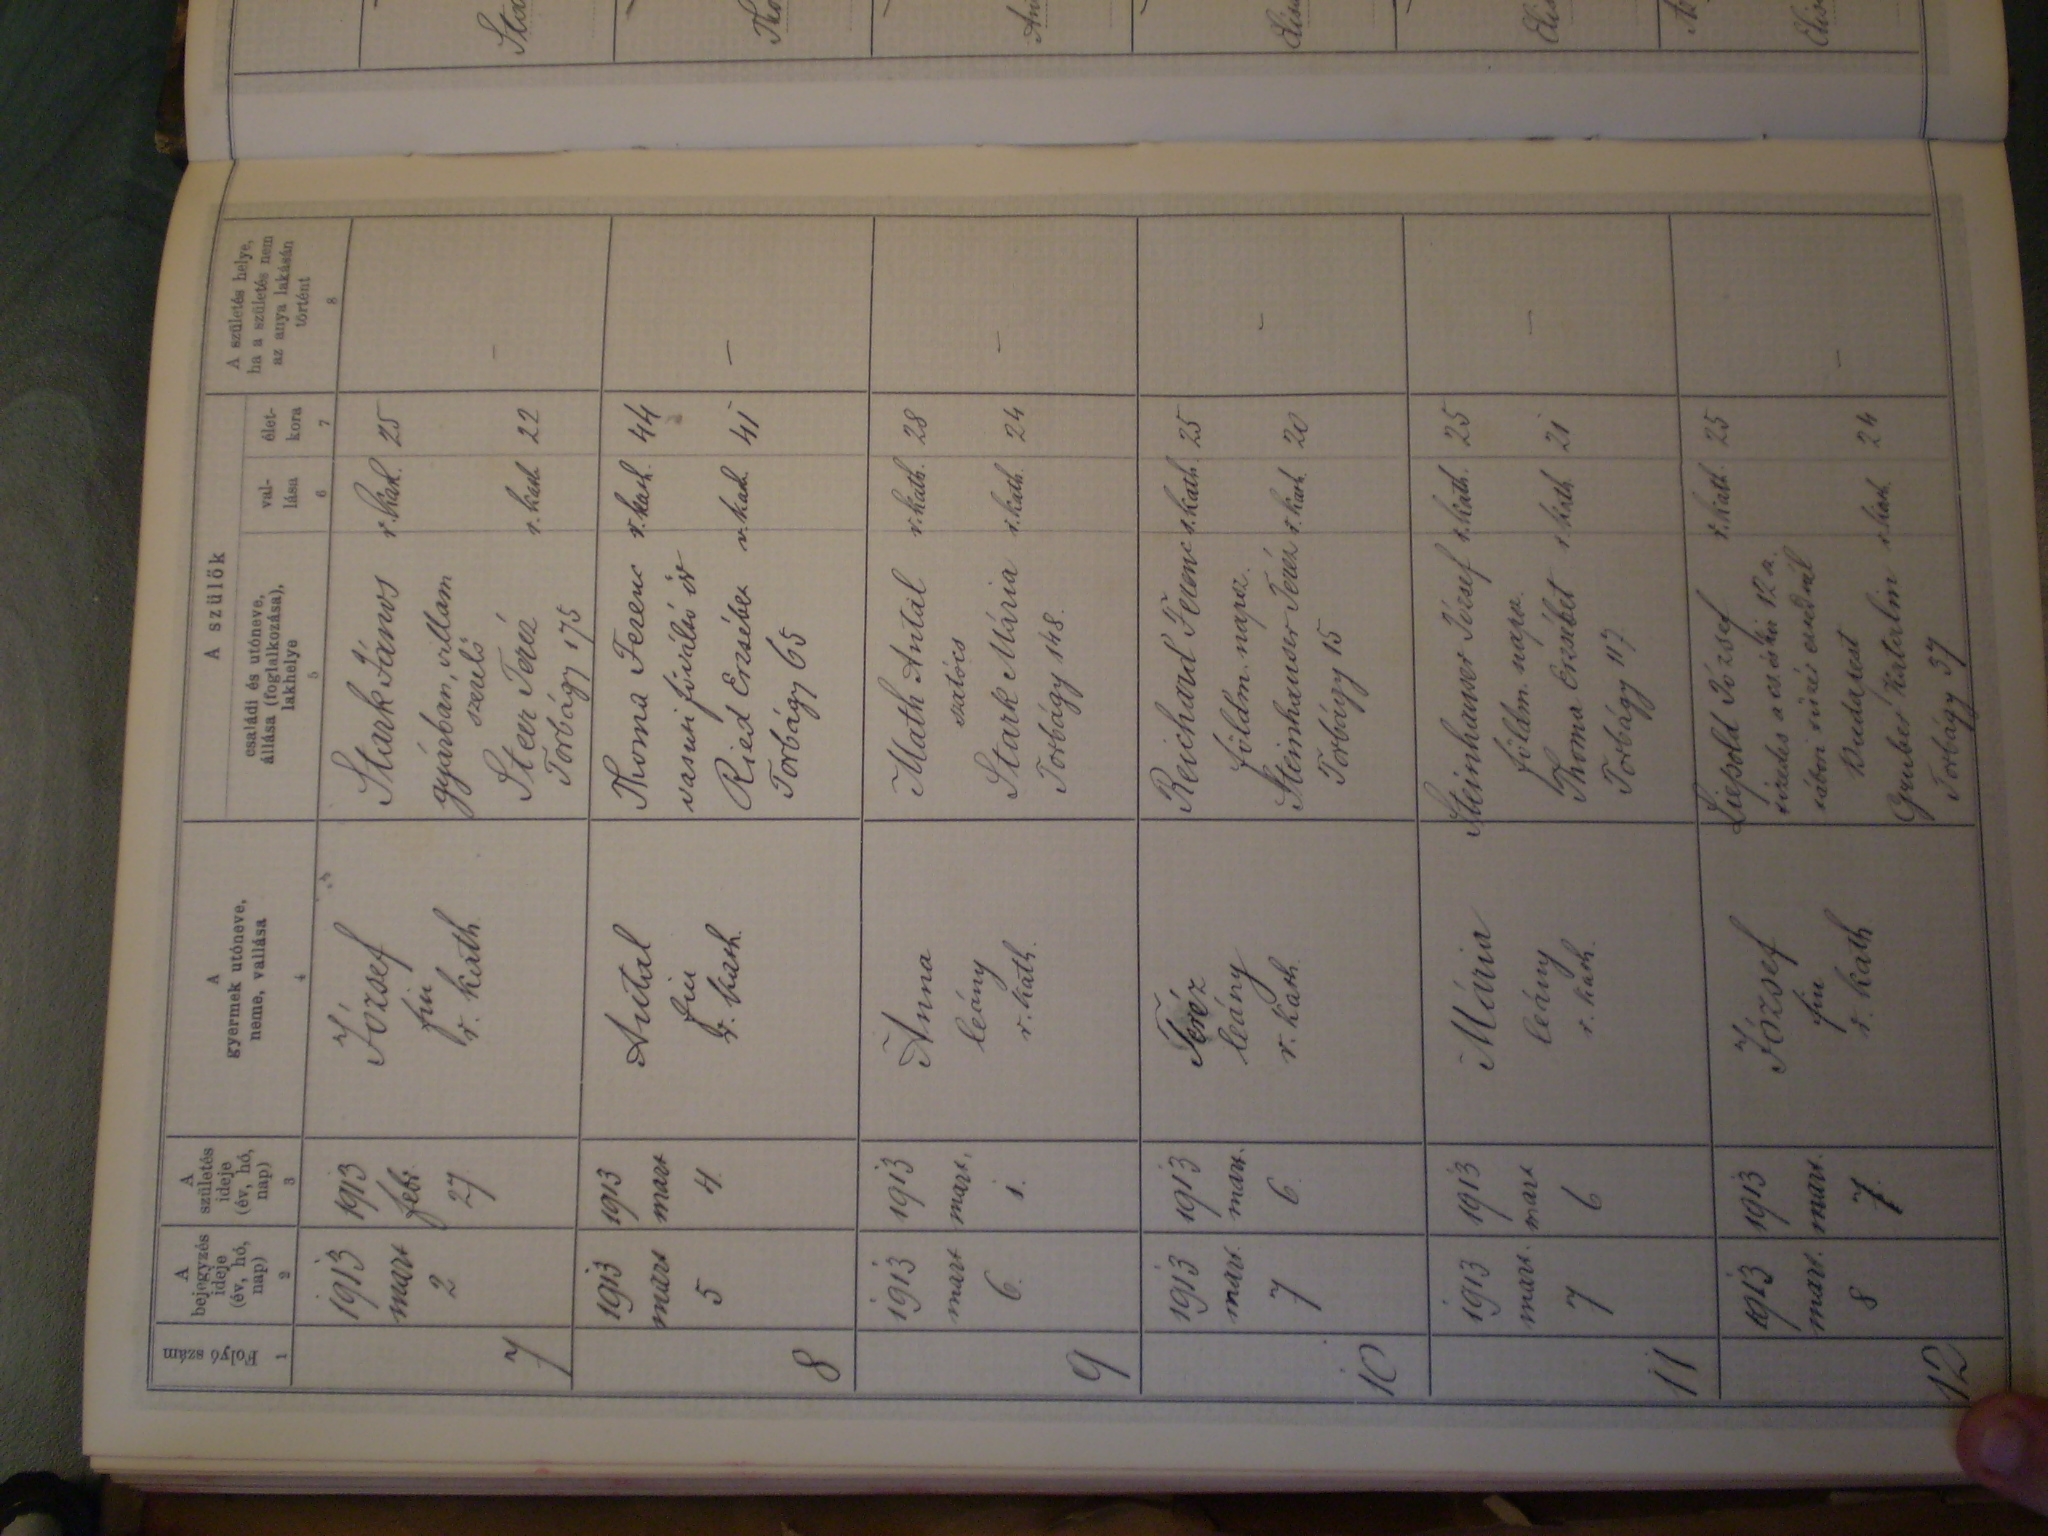 Folyó szám
1
A
bejegyzés
ideje
(év, hó,
nap)
2
A
születés
ideje
(év, hó,
nap)
3
A
gyermek utóneve,
neme, vallása
4
A szülők
családi és utóneve,
állása (foglalkozása),
lakhelye
5
val-
lása
6
élet-
kora
7
A születés helye,
ha a születés nem
az anya lakásán
történt
8
7
1913
mart
2
1913
febr.
27
József
fiu
r. kath.
Stark János r. kat. 25
gyárban, villam
szerelő
Steer Teréz r. kath 22
Torbágy 175
-
8
1913
mart
5
1913
mart
4.
Antal
fiu
r. kath.
Thoma Ferenc r. kath. 44
vasuti főváltó őr
Ried Erzsébet r. kath. 41
Torbágy 65
-
9
1913
mart
6.
1913
mart.
1.
Anna
leány
r. kath.
Math Antal r. kath. 28
szatócs
Stark Mária r. kath. 24
Torbágy 148.
-
10
1913
mart.
7
1913
mart.
6.
Teréz
leány
r. kath.
Reichard Ferenc r. kath. 25
földm. napsz.
Steinhauser Teréz r. kath. 20
Torbágy 15
-
11
1913
mart.
7
1913
mart
6
Mária
leány
r. kath.
Steinhauser József r. kath. 25
földm. napsz.
Thoma Erzsébet r. kath. 21
Torbágy 117.
-
12
1913
mart.
8
1913
mart.
7.
József
fiu
r. kath
Liepold József r. kath. 25
tizedes a cs és kir 12. a.
tábori tüzér ezrednél
Budapest
Gruber Katalin r. kath. 24
Torbágy 37
-